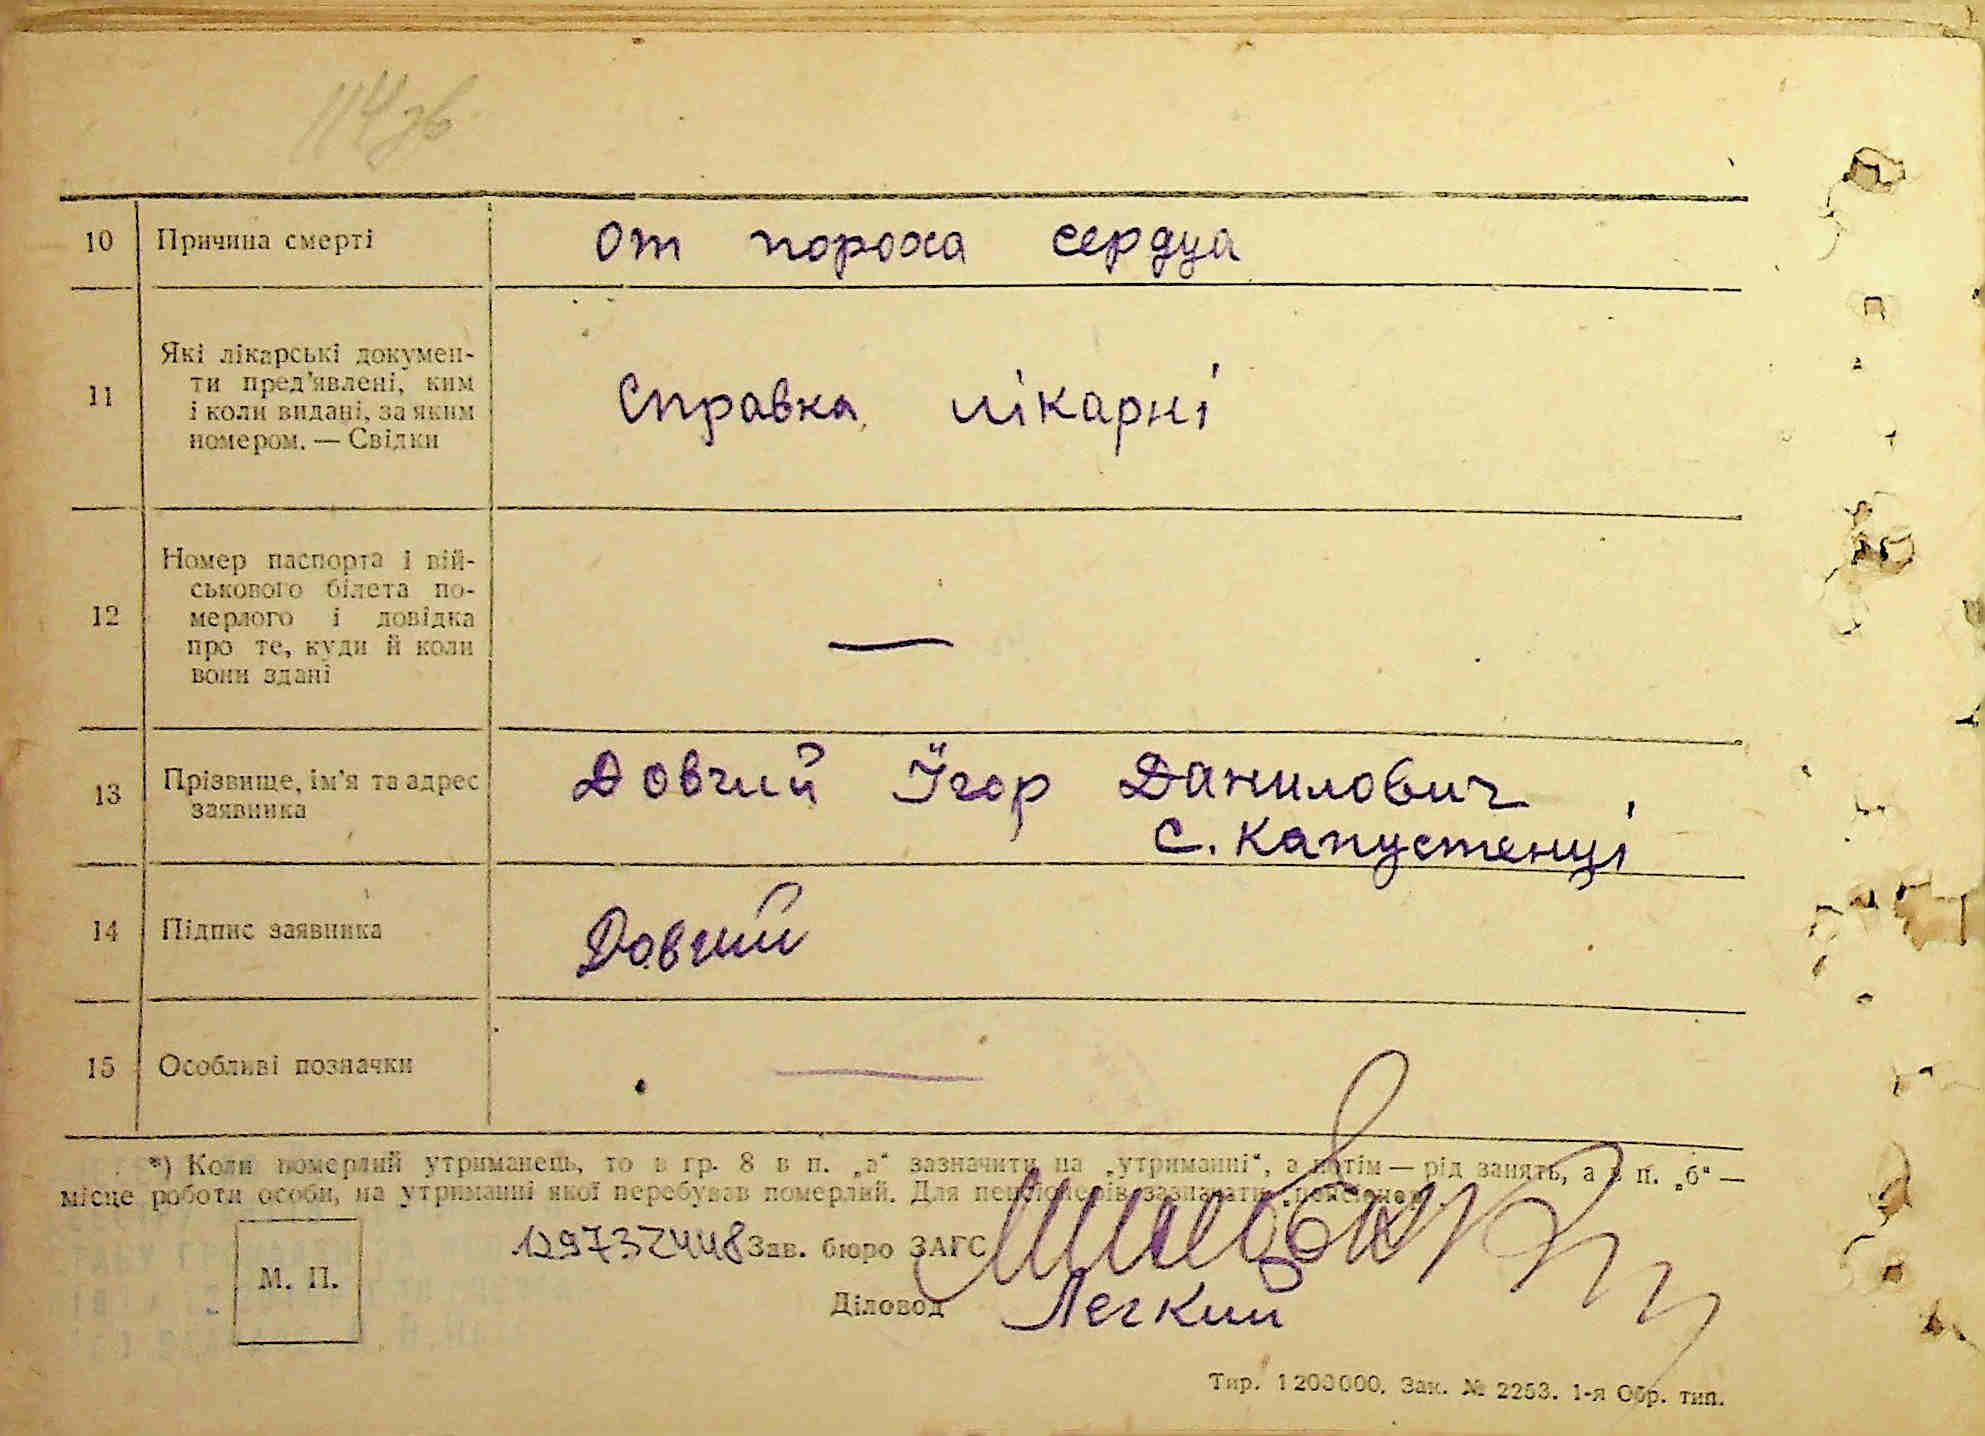 114 зв
10 Причина смерті От пороха сердца
11 Які лікарські докумен-
ти пред'явлені, ким
і коли видані, за яким
номером. — Свідки
Справка лікарні
12 Номер паспорта і вій-
ськового білета по-
мерлого і довідка
про те, куди й коли
вони здані
—
13 Прізвище, ім'я та адрес
заявника
Довгий Їгор Данилович
с. Капустенці
14 Підпис заявника Довгий
15 Особливі позначки —
*) Коли померлий утриманець, то в гр. 8 в п. „а“ зазначити на „утриманні“, а потім — рід занять, а в п. „б“ —
місце роботи особи, на утриманні якої перебував померлий. Для пенсіонерів зазначати „пенсіонер“
1297372448 Зав. бюро ЗАГС
М. П.
Діловод Легкий
Тир. 1200000. Зак. № 2253. 1-я Обр. тип.